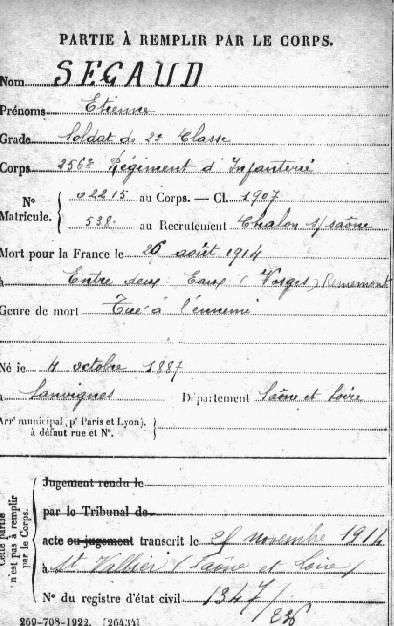 PARTIE À REMPLIR PAR LE CORPS.
Nom SEGAUD
Prénoms Etienne
Grade Soldat de 2e Classe
Corps 256e Régiment d'Infanterie
N° Matricule. { 02215 au Corps. — Cl. 1907
538 au Recrutement Chalon s/ Saône
Mort pour la France le 26 août 1914
à Entre deux Eaux (Vosges) Remémont
Genre de mort Tué à l'ennemi
Né le 4 octobre 1887
à Sanvignes Département Saône et Loire
Arrt municipal (pr Paris et Lyon), à défaut rue et N°. }
Cette partie n'est pas à remplir par le Corps.
Jugement rendu le
par le Tribunal de
acte ou jugement transcrit le novembre 1914
à St Vallier (Saône et Loire)
N° du registre d'état civil 1347/
269-708-1922. [26434]